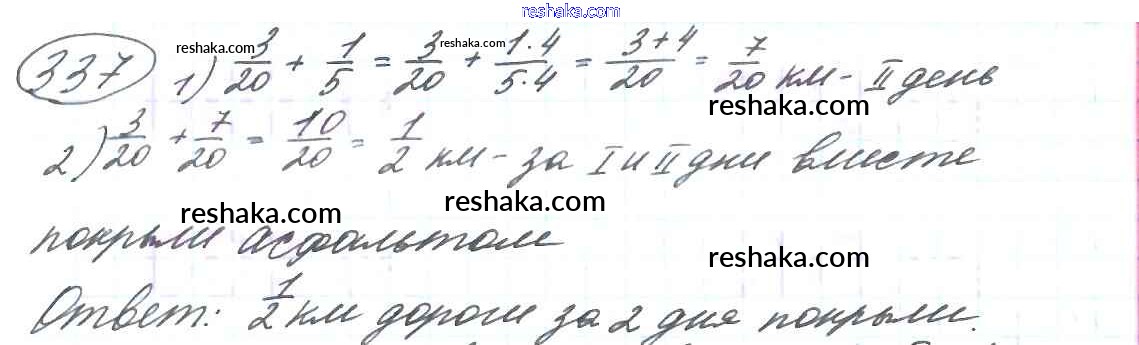 reshaka.com
337 1) 3/20 + 1/5 = 3/20 + 1·4/5·4 = 3+4/20 = 7/20 км - II день
reshaka.com reshaka.com
reshaka.com
2) 3/20 + 7/20 = 10/20 = 1/2 км - за I и II дни вместе
reshaka.com reshaka.com
покрыли асфальтом
reshaka.com
Ответ: 1/2 км дороги за 2 дня покрыли.